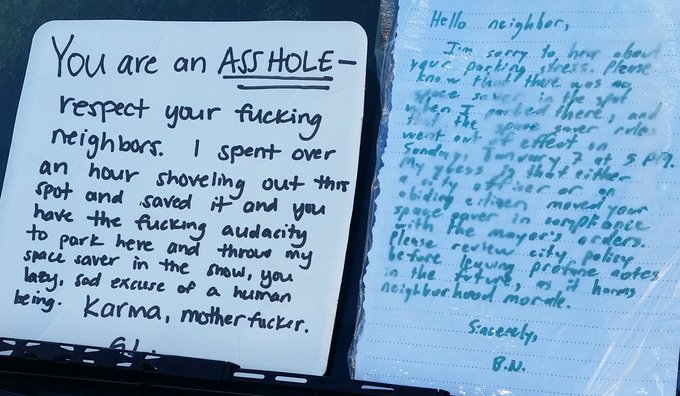 You are an ASSHOLE—
respect your fucking
neighbors. I spent over
an hour shoveling out this
spot and saved it and you
have the fucking audacity
to park here and throw my
space saver in the snow, you
lazy, sad excuse of a human
being. Karma, motherfucker.
Hello neighbor,
I'm sorry to hear about
your parking stress. Please
know that there was no
space saver in the spot
when I parked there, and
that the space saver rules
went out of effect on
Sunday, January 7 at 5 pm.
My guess is that either
a city officer or an
abiding citizen moved your
space saver in compliance
with the mayor's orders.
Please review city policy
before leaving profane notes
in the future, as it harms
neighborhood morale.
Sincerely,
B.N.